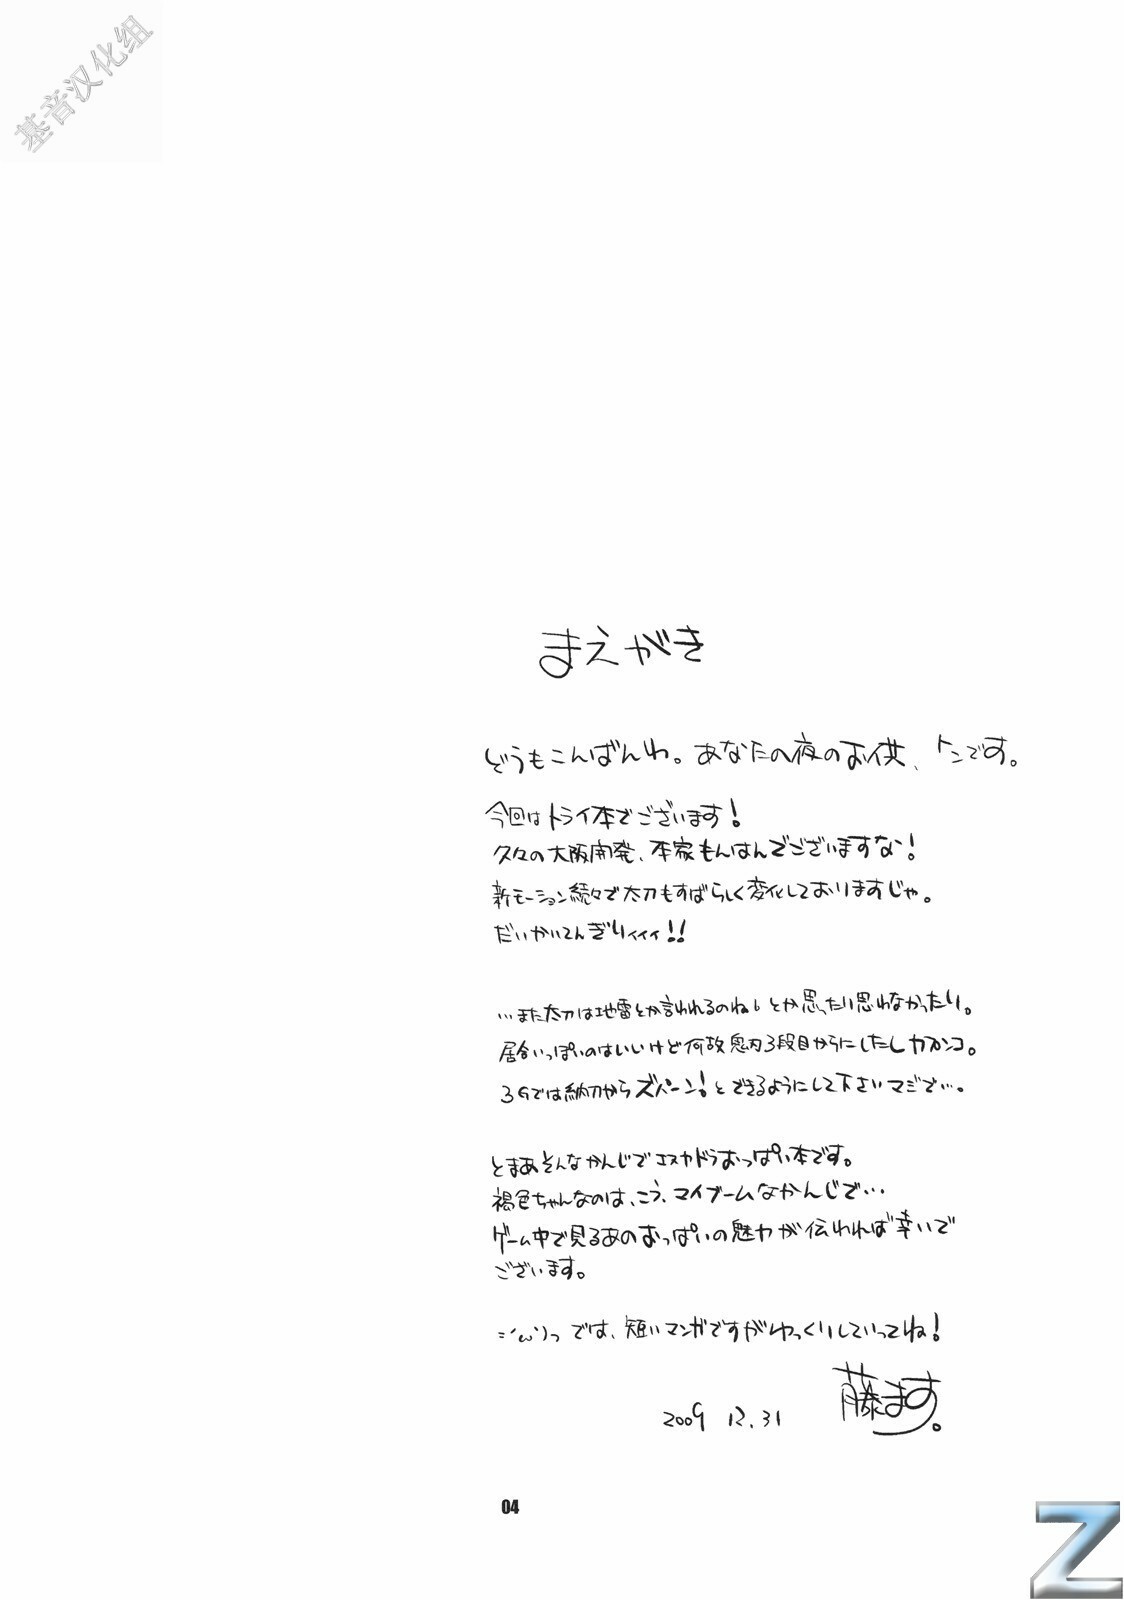 基音汉化组
まえがき
どうもこんばんわ。あなたの夜のお供、トンです。
今回はトライ本でございます!
久々の大阪開発、本家もんはんでございますな!
新モーション続々で太刀もすばらしく変化しておりますじゃ。
だいかいてんぎりィィィ!!
…また太刀は地雷とか言われるのねとか思ったり思わなかったり。
居合いっぽいのはいいけど何故鬼刃3段目からにしたしカプンコ。
3Gでは納刀からズバーン!とできるようにして下さいマジで…。
とまあそんなかんじでエスカドラおっぱい本です。
褐色ちゃんなのは、こう、マイブームなかんじで…
ゲーム中で見るあのおっぱいの魅力が伝われば幸いで
ございます。
では、短いマンガですがゆっくりしていってね!
2009 12.31
藤ます。
04
Z